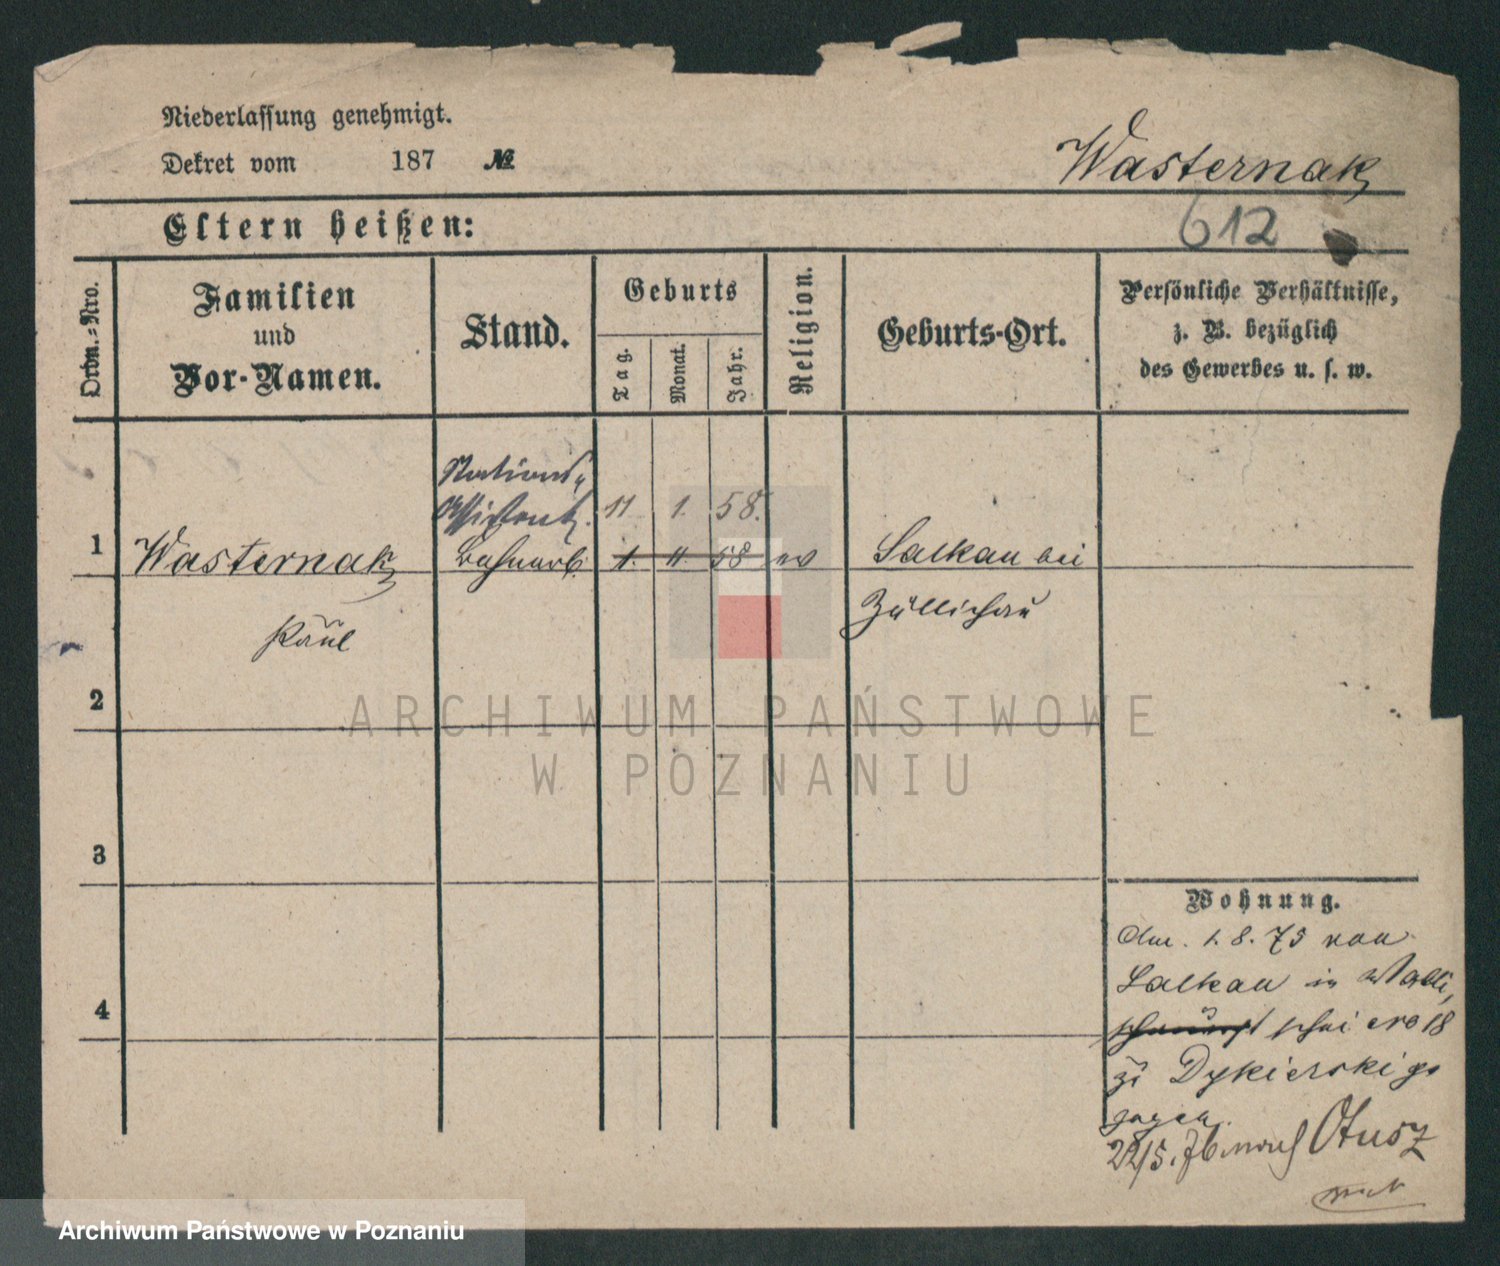 Niederlassung genehmigt.
Dekret vom 187 №
Wasternak
612
Eltern heißen:
Ordn.-Nro.
Familien
und
Vor-Namen.
Stand.
Geburts
Tag.
Monat.
Jahr.
Religion.
Geburts-Ort.
Persönliche Verhältnisse,
z. B. bezüglich
des Gewerbes u. s. w.
Stations-
Assistent. 11 1. 58.
1 Wasternak Bahnarb. 1. 11. 58 ev Salkau bei
Paul Züllichau
2
3
4
Wohnung.
1. 8. 75 von
Salkau in Walli,
schei No 18
zu Dykierski ge
zogen.
22/5. 76. nach Otusz
ARCHIWUM PAŃSTWOWE
W POZNANIU
Archiwum Państwowe w Poznaniu